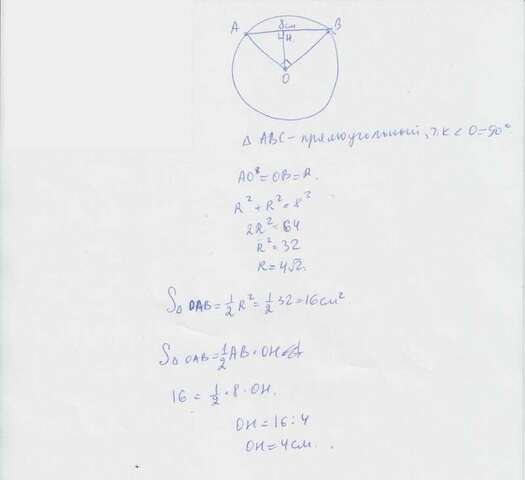 A 8см B
H
O
Δ ABC - прямоугольный, т.к < O = 90°
AO = OB = R.
R² + R² = 8²
2R² = 64
R² = 32
R = 4√2.
S△ OAB = 1/2 R² = 1/2 32 = 16 см²
S△ OAB = 1/2 AB · OH
16 = 1/2 · 8 · OH.
OH = 16 : 4
OH = 4 см.